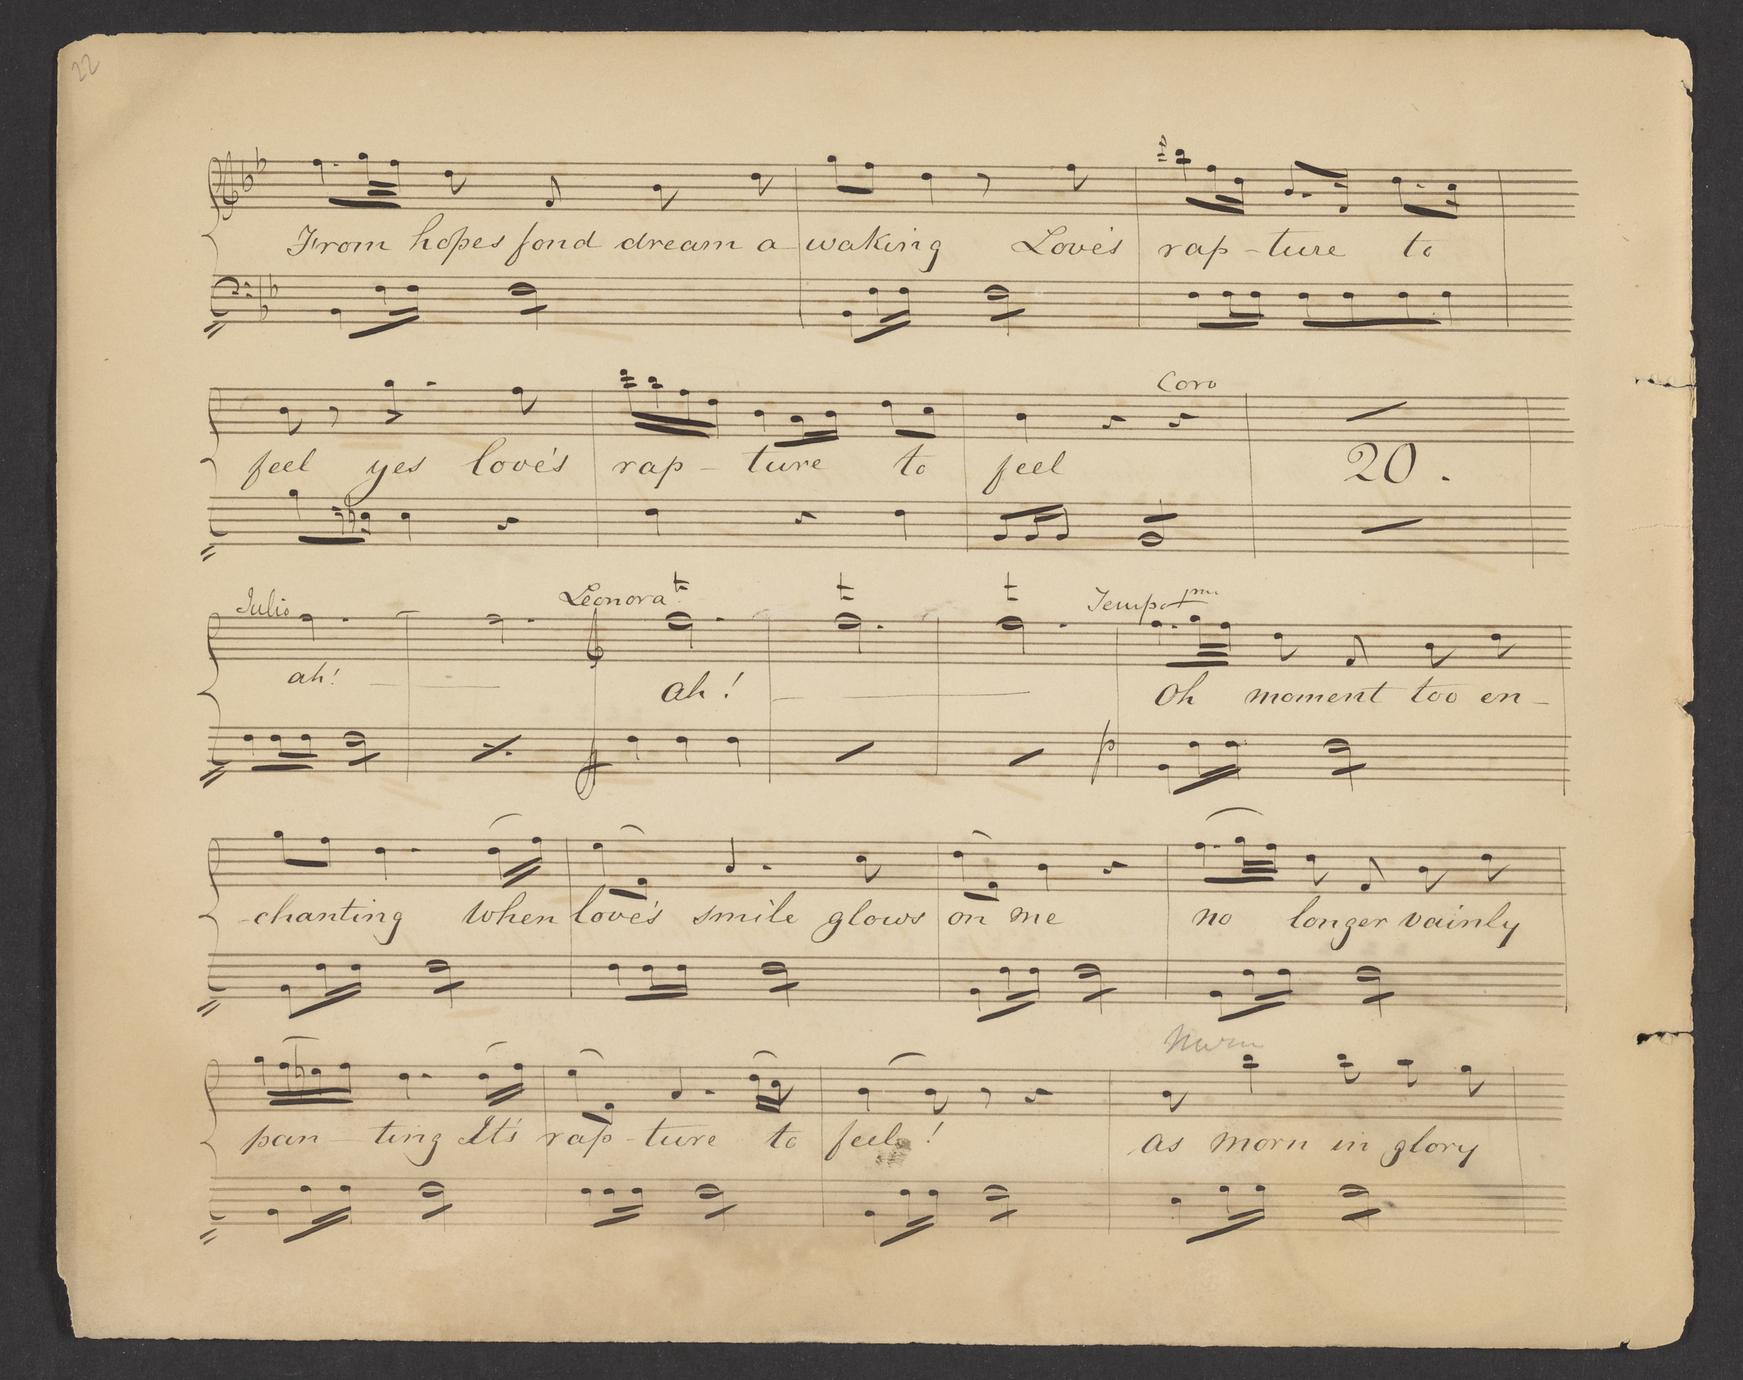 22
From hopes fond dream a waking Love's rap - ture to
Coro
feel yes love's rap - ture to feel 20.
Julio Leonora t t t Tempo pmo
ah! ah! Oh moment too en -
p
- chanting when love's smile glows on me no longer vainly
Morn
pan - ting It's rap - ture to feel! as morn in glory